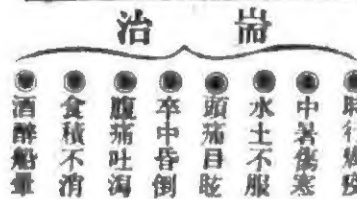 耑治
時行疫
中暑傷寒
水土不服
頭痛目眩
卒中昏倒
腹痛吐瀉
食積不消
酒醉船暈